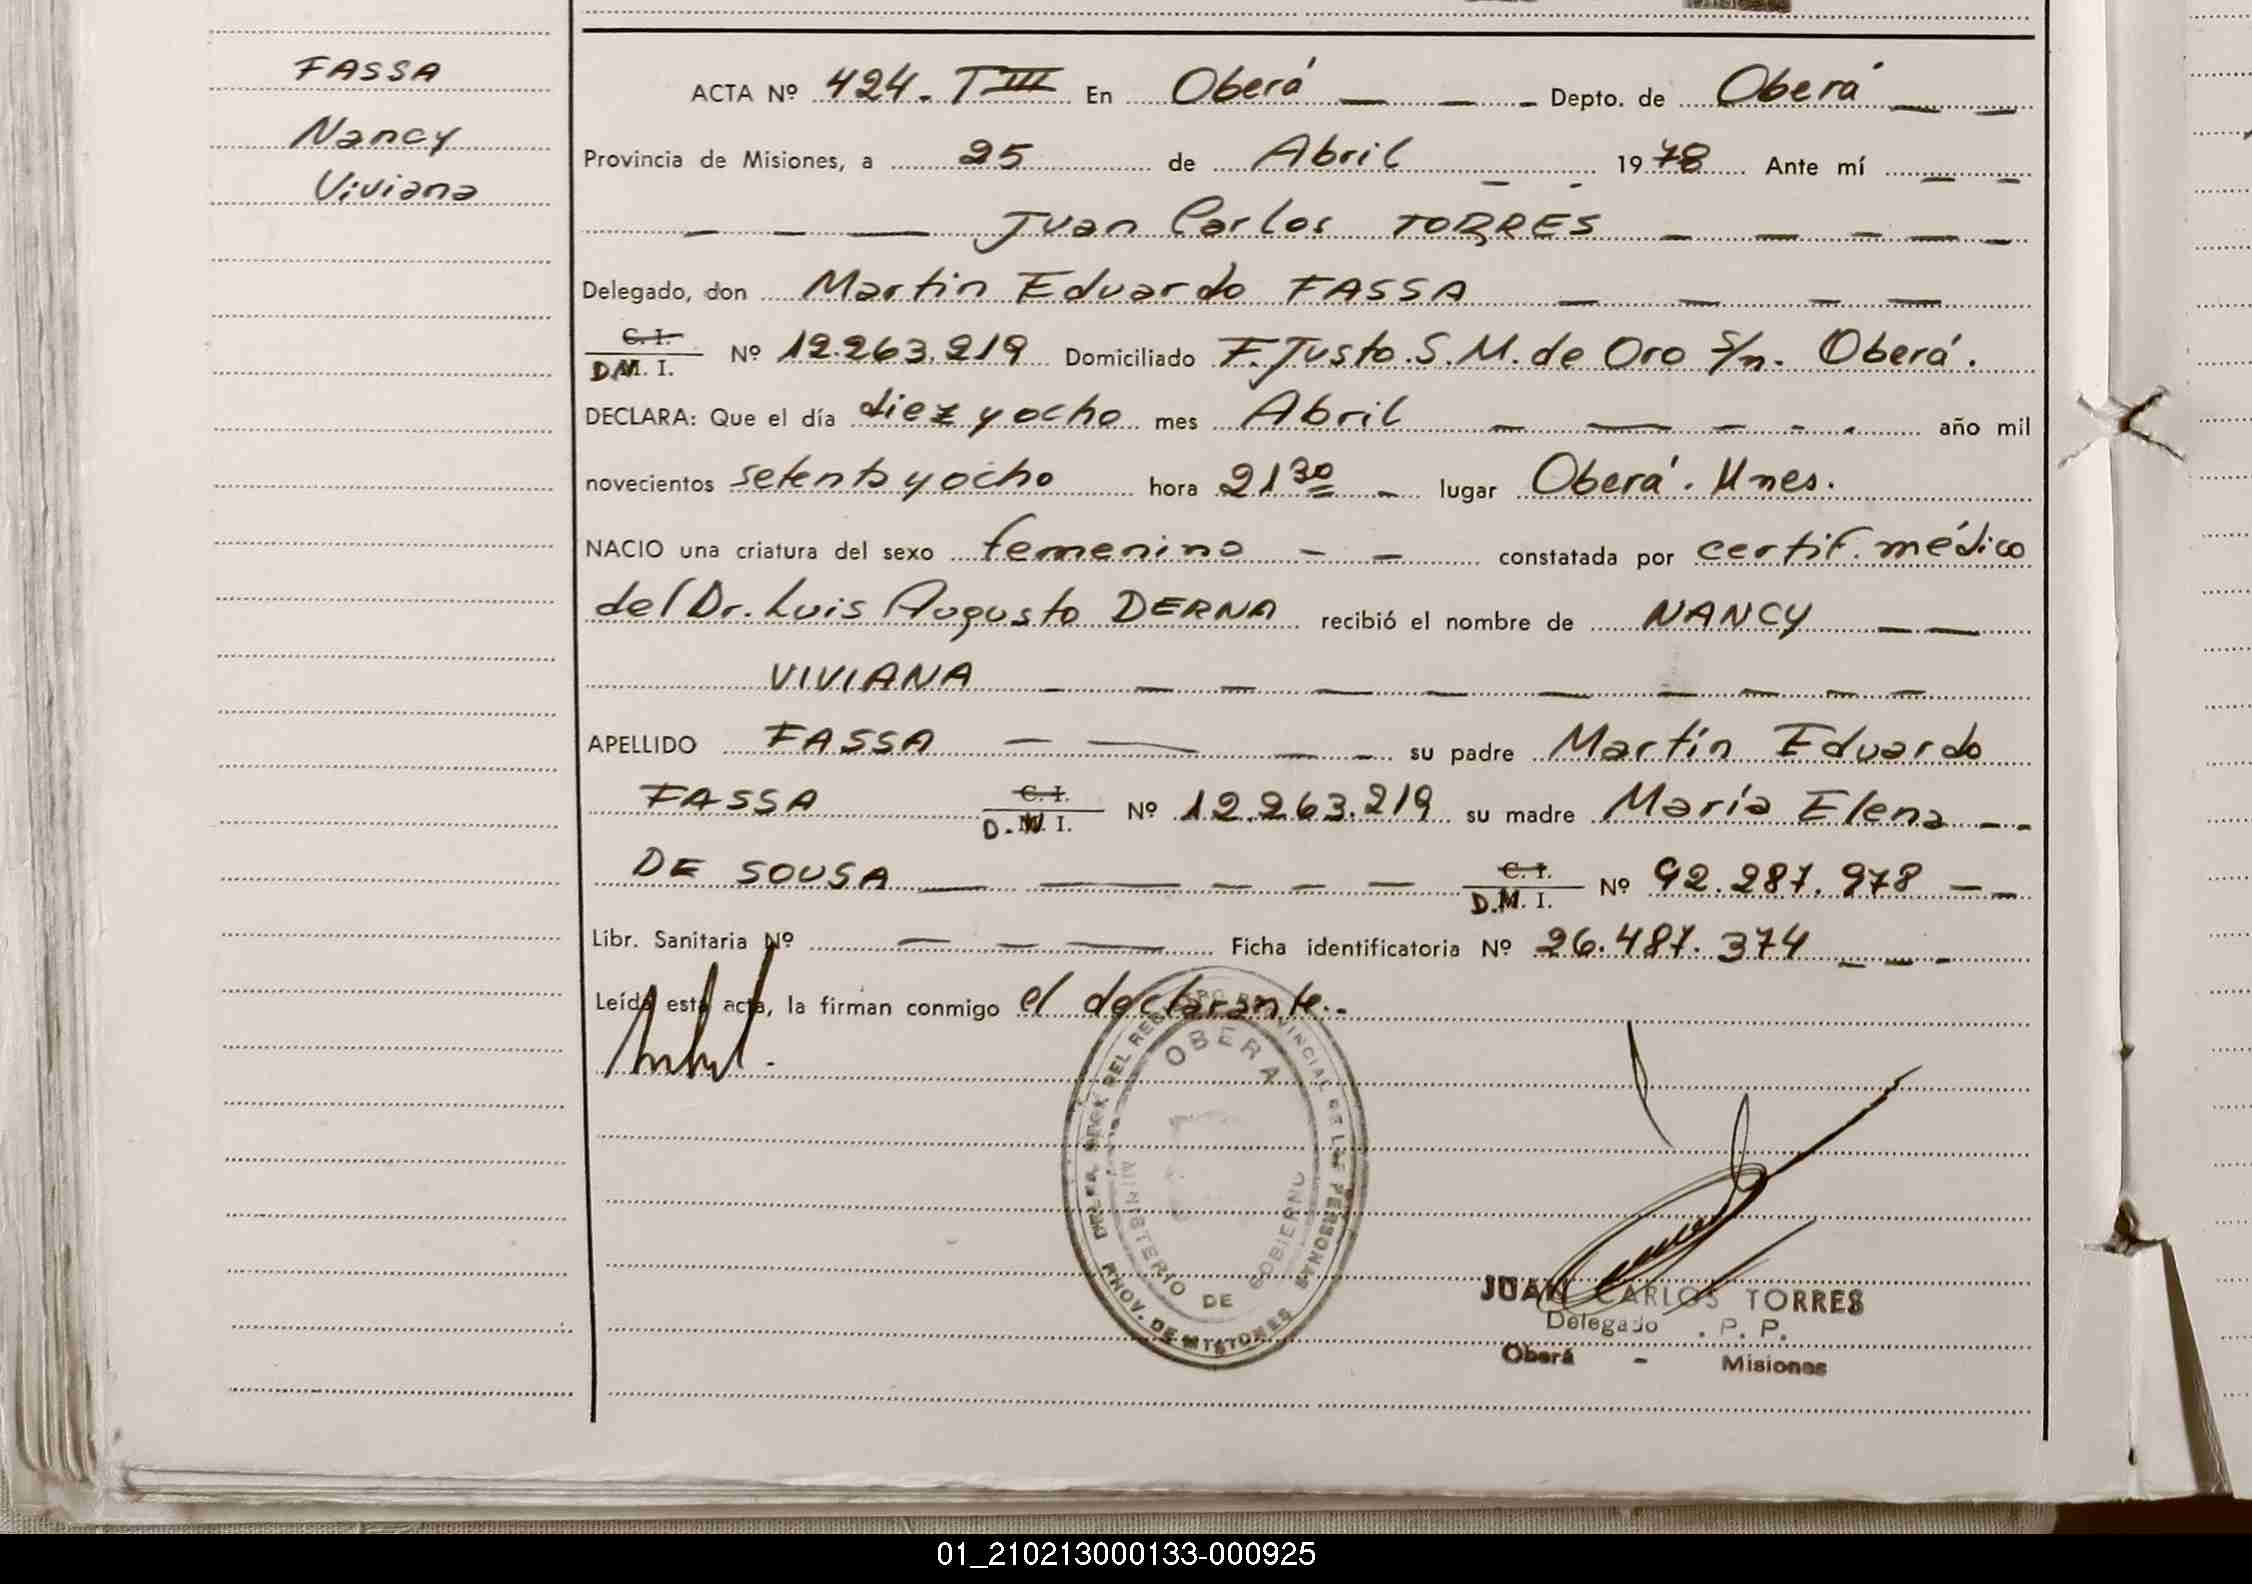 FASSA
Nancy
Viviana
ACTA Nº 424. TIII En Oberá Depto. de Oberá
Provincia de Misiones, a 25 de Abril 1978 Ante mí
Juan Carlos TORRES
Delegado, don Martin Eduardo FASSA
C. I.
D.N. I. Nº 12.263.219 Domiciliado F. Justo. S. M. de Oro s/n. Oberá.
DECLARA: Que el día diez y ocho mes Abril año mil
novecientos setenta y ocho hora 21 30 lugar Oberá. Mnes.
NACIO una criatura del sexo femenino constatada por certif. médico
del Dr. Luis Augusto DERNA recibió el nombre de NANCY
VIVIANA
APELLIDO FASSA su padre Martín Eduardo
FASSA C. I. D.N. I. Nº 12.263.219 su madre María Elena
DE SOUSA C. I. D.N. I. Nº 92.287.978
Libr. Sanitaria Nº Ficha identificatoria Nº 26.487.374
Leída esta acta, la firman conmigo el declarante.
OBERA
MINISTERIO DE GOBIERNO
PROV. DE MISIONES
JUAN CARLOS TORRES
Delegado P. P.
Oberá - Misiones
01_210213000133-000925